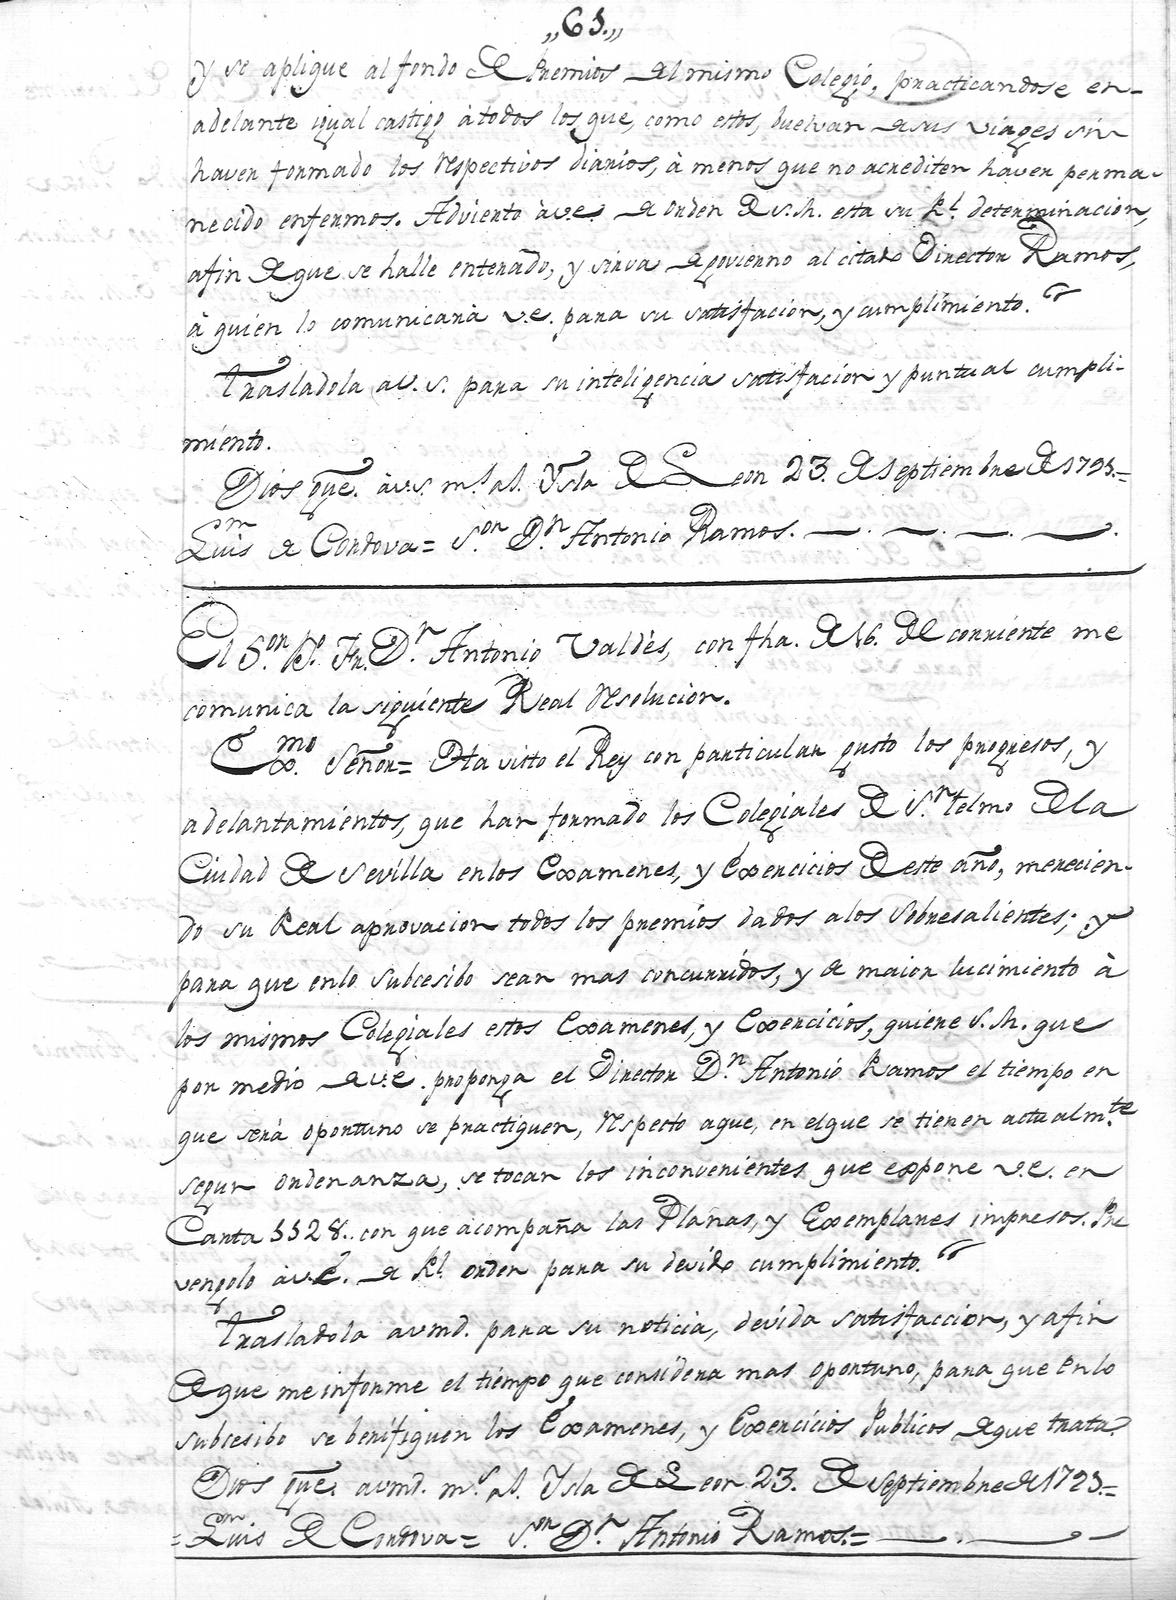 „65.„
y se aplique al fondo de Premios del mismo Colegio, practicandose en-
adelante igual castigo à todos los que, como estos, buelvan de sus viages sin
haver formado los respectivos diarios, à menos que no acrediten haver perma-
necido enfermos. Advierto à v.e. de orden de S.M. esta su Rl. determinacion,
afin de que se halle enterado, y sirva de govierno al citado Director Ramos,
à quien lo comunicarà v.e. para su satisfacion, y cumplimiento.
Trasladola a v.s. para su inteligencia satisfacion y puntual cumpli-
miento.
Dios gue. à v.s. ms. as. Ysla de Leon 23. de Septiembre de 1793.=
Luis de Cordova= Sor. Dn. Antonio Ramos.
El Sor. Bo. Fr. Dn. Antonio Valdès, con fha. de 16. del corriente me
comunica la siguiente Real resolucion.
Exmo. Señor= Ha visto el Rey con particular gusto los progresos, y
adelantamientos, que han formado los Colegiales de Sn. telmo de la
Ciudad de Sevilla en los Examenes, y Exercicios de este año, merecien-
do su Real aprovacion todos los premios dados a los Sobresalientes; y
para que enlo subcesibo sean mas concurridos, y de maior lucimiento à
los mismos Colegiales estos Examenes, y Exercicios, quiere S.M. que
por medio de v.e. proponga el Director Dn. Antonio Ramos el tiempo en
que serà oportuno se practiquen, respecto aque, en elque se tienen actualmte.
segun ordenanza, se tocan los inconvenientes que expone v.e. en
Carta 3328. con que acompaña las Planas, y Exemplares impresos. Pre
vengolo à v.e. de Rl. orden para su devido cumplimiento.
Trasladola a vmd. para su noticia, devida satisfaccion, y afin
de que me informe el tiempo que considera mas oportuno, para que enlo
subcesibo se berifiquen los Examenes, y Exercicios Publicos de que trata.
Dios gue. a vmd. ms. as. Ysla de Leon 23. de Septiembre de 1793.=
= Luis de Cordova= Sor. Dn. Antonio Ramos.=